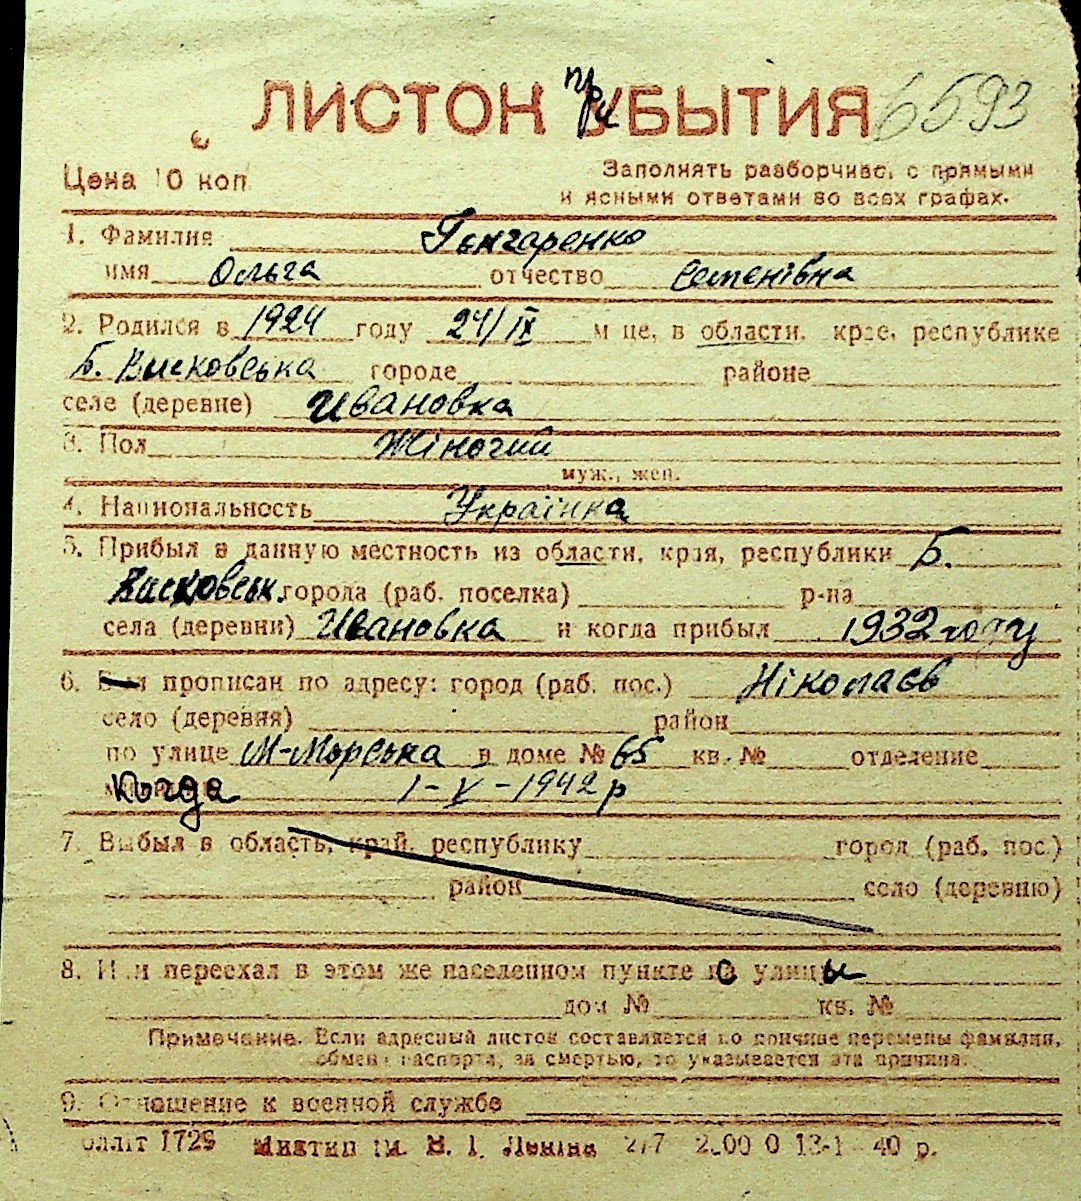 ЛИСТОК прибЫТИЯ 6593
Цена 10 коп
Заполнять разборчиво, с прямыми
и ясными ответами во всех графах.
1. Фамилия Гончаренко
имя Ольга отчество Семенівна
2. Родился в 1924 году 24/IX м це, в области, крае, республике
Б. Висковська городе районе
селе (деревне) Ивановка
3. Пол Жіночий
муж., жен.
4. Национальность Українка
5. Прибыл в данную местность из области, края, республики Б.
Висковськ. города (раб. поселка) р-на
села (деревни) Ивановка и когда прибыл 1932 году
6. прописан по адресу: город (раб. пос.) Ніколаєв
село (деревня) район
по улице М-Морська в доме № 65 кв. № отделение
Когда 1-V-1942 р
7. Выбыл в область, край, республику город (раб. пос.)
район село (деревню)
8. Или переехал в этом же населенном пункте с улицы
дом № кв. №
Примечание. Если адресный листок составляется по причине перемены фамилии,
обмена паспорта, за смертью, то указывается эта причина.
9. Отношение к военной службе
оллiт 1729 Миктип iм. В. І. Ленiна 2.00 0 13-1 40 р.